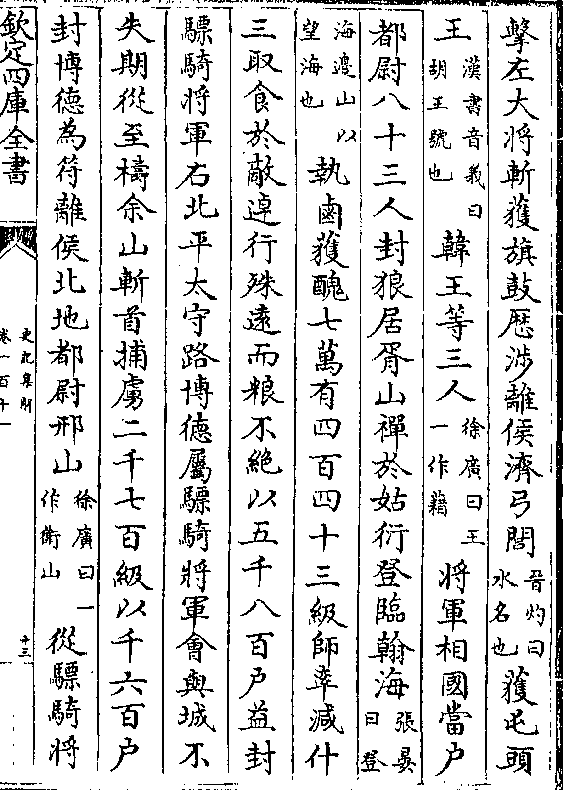 擊左大將斬獲旗鼓歴涉離侯濟弓閭晉灼曰水名也獲屯頭
王漢書音義曰胡王號也韓王等三人徐廣曰王一作藉將軍相國當户
都尉八十三人封狼居胥山禪於姑衍登臨翰海張晏曰登
海邊山以望海也執鹵獲醜七萬有四百四十三級師率減什
三取食於敵逴行殊逺而粮不絶以五千八百户益封
驃騎將軍右北平太守路博徳屬驃騎將軍會與城不
失期從至檮余山斬首捕虜二千七百級以千六百户
封博徳為符離侯北地都尉邢山徐廣曰一作衛山從驃騎將
欽定四庫全書
史記集解
卷一百十一
十三